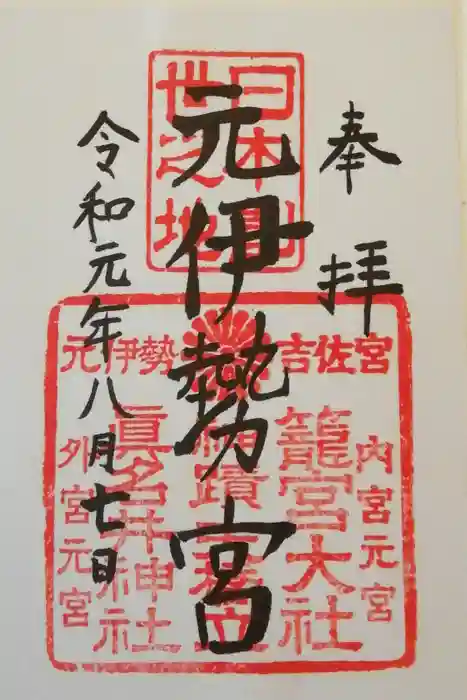 奉拝
日本創
世之地
元伊勢宮
令和元年八月七日
吉佐宮
元伊勢
内宮元宮
籠宮大社
眞名井神社
外宮元宮